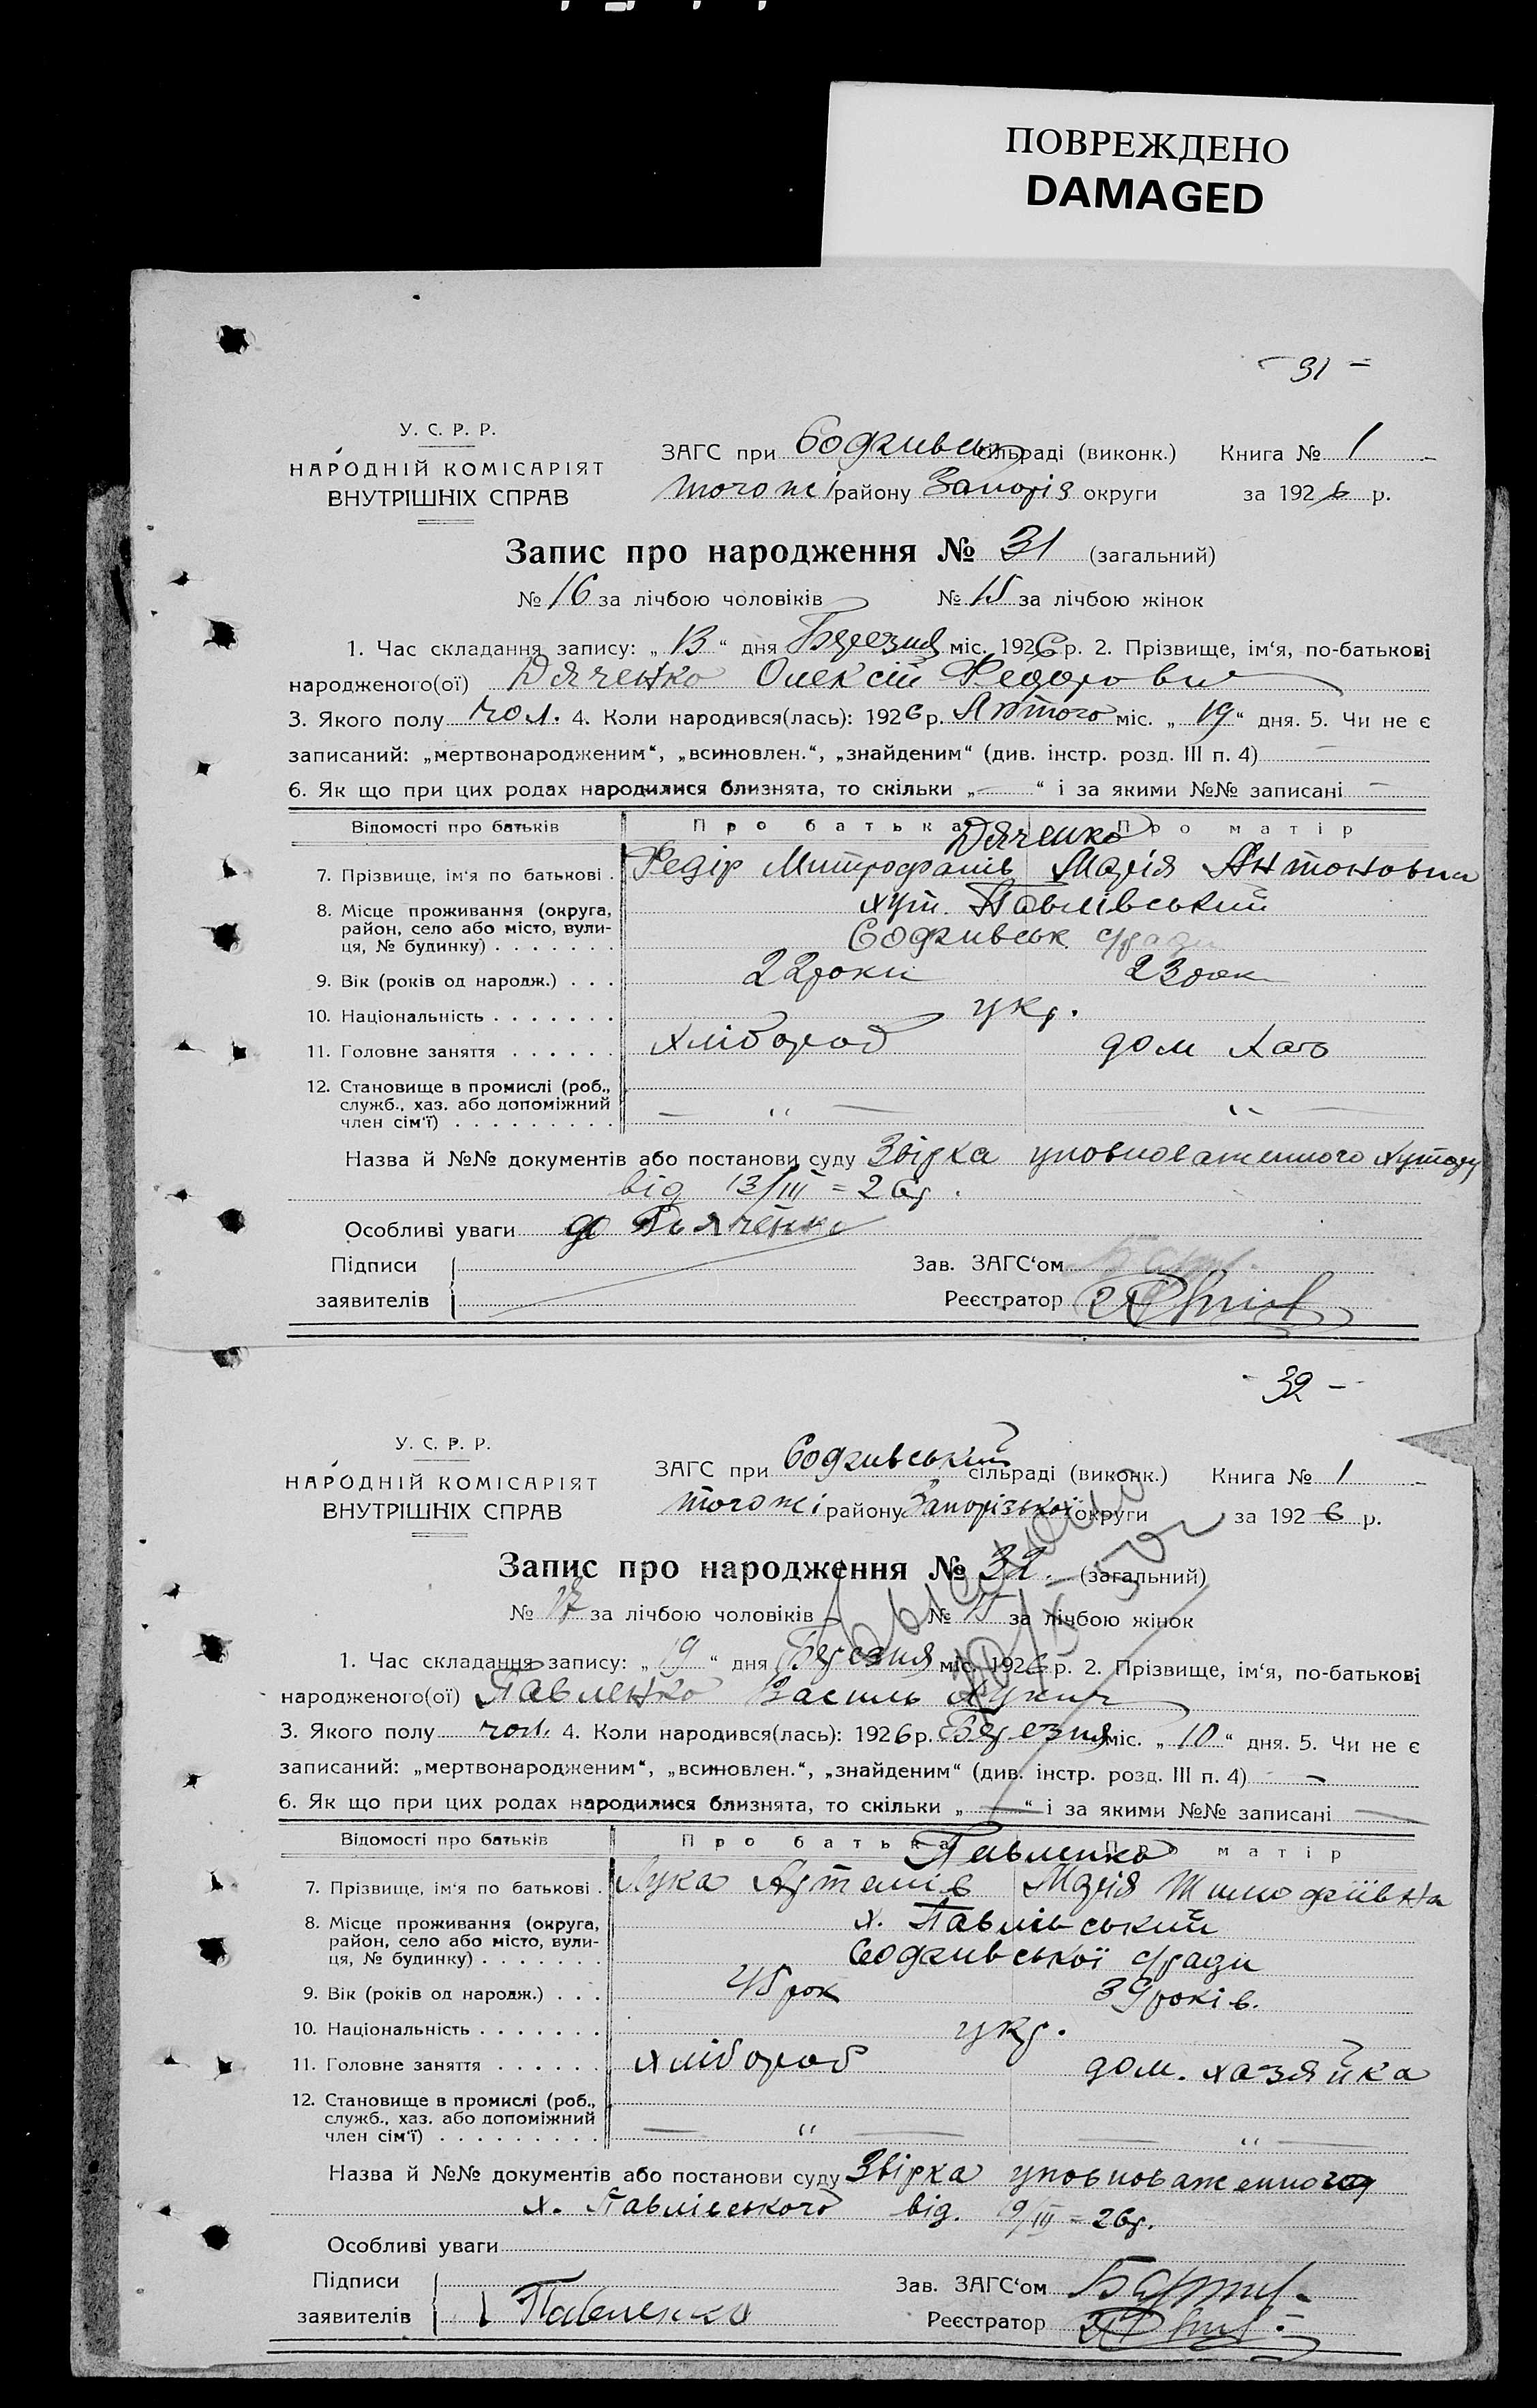 ПОВРЕЖДЕНО
DAMAGED
- 31 -
У. С. Р. Р.
НАРОДНІЙ КОМІСАРІЯТ
ВНУТРІШНІХ СПРАВ
ЗАГС при сільраді (виконк.) Книга № 1
того ж району Запоріз округи за 1926 р.
Запис про народження № 31 (загальний)
№ 16 за лічбою чоловіків № 15 за лічбою жінок
1. Час складання запису: „ 13 “ дня Березня міс. 1926 р. 2. Прізвище, ім‘я, по-батькові
народженого(ої) Дяченко Олексій Федорович
3. Якого полу чол. 4. Коли народився(лась): 1926 р. Лютого міс. „ 19 “ дня. 5. Чи не є
записаний: „мертвонародженим“, „всиновлен.“, „знайденим“ (див. інстр. розд. III п. 4) —
6. Як що при цих родах народилися близнята, то скільки „ — “ і за якими №№ записані —
Відомості про батьків Про батька Про матір
Дяченко
7. Прізвище, ім‘я по батькові . Федір Митрофанів Марія Антоновна
8. Місце проживання (округа, хут. Павлівський
район, село або місто, вули-
ця, № будинку) . . . . . . . с/ради
9. Вік (років од народж.) . . . 22 роки 23 рок
10. Національність . . . . . . . укр.
11. Головне заняття . . . . . . хлібороб дом хаз
12. Становище в промислі (роб.,
служб., хаз. або допоміжний
член сім‘ї) . . . . . . . . . — „ — „ —
Назва й №№ документів або постанови суду Звірка уповноваженного хутору
від 13/III = 26 р.
Особливі уваги Дьяченко
Підписи Зав. ЗАГС‘ом
заявителів Реєстратор
- 32 -
У. С. Р. Р.
НАРОДНІЙ КОМІСАРІЯТ
ВНУТРІШНІХ СПРАВ
ЗАГС при сільраді (виконк.) Книга № 1
того ж району Запорізької округи за 1926 р.
Запис про народження № 32. (загальний)
№ 17 за лічбою чоловіків № 15 за лічбою жінок
1. Час складання запису: „ 9 “ дня Березня міс. 1926 р. 2. Прізвище, ім‘я, по-батькові
народженого(ої) Павленко Василь Лукич
3. Якого полу чол. 4. Коли народився(лась): 1926 р. Березня міс. „ 10 “ дня. 5. Чи не є
записаний: „мертвонародженим“, „всиновлен.“, „знайденим“ (див. інстр. розд. III п. 4) —
6. Як що при цих родах народилися близнята, то скільки „ — “ і за якими №№ записані —
Відомості про батьків Про батька Про матір
Павленко
7. Прізвище, ім‘я по батькові . Лука Артемів Марія Тимофіївна
8. Місце проживання (округа, х. Павлівський
район, село або місто, вули-
ця, № будинку) . . . . . . . с/ради
9. Вік (років од народж.) . . . 45 рок 39 років.
10. Національність . . . . . . . укр.
11. Головне заняття . . . . . . хлібороб дом. хазяйка
12. Становище в промислі (роб.,
служб., хаз. або допоміжний
член сім‘ї) . . . . . . . . . — „ — — „ —
Назва й №№ документів або постанови суду Звірка уповноваженного
х. Павлівського від. 9/III = 26 р.
Особливі уваги
Підписи Зав. ЗАГС‘ом
заявителів Павленко Реєстратор